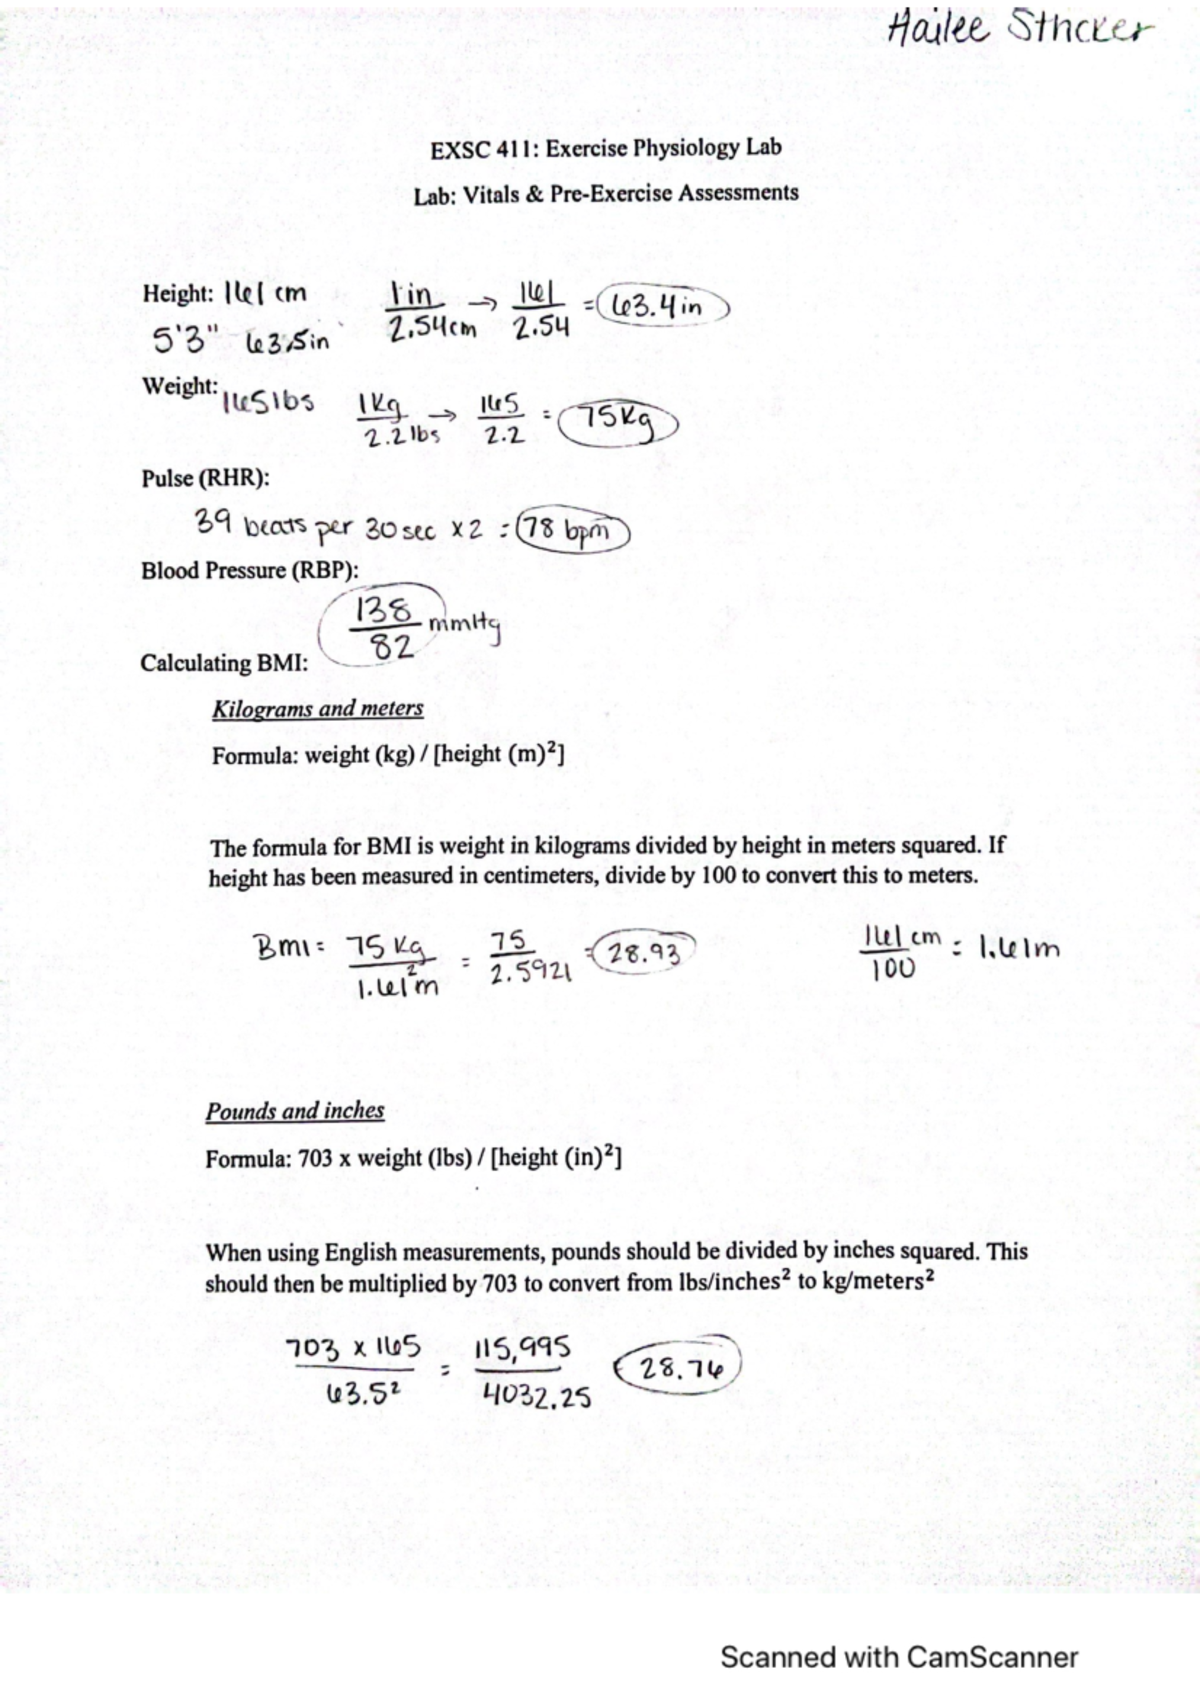 Hailee Stricker
EXSC 411: Exercise Physiology Lab
Lab: Vitals & Pre-Exercise Assessments
Height: 161 cm 1 in / 2.54cm → 161 / 2.54 = 63.4 in
5'3" 63.5in
Weight: 165 lbs 1 Kg / 2.2 lbs → 165 / 2.2 = 75Kg
Pulse (RHR):
39 beats per 30 sec x 2 = 78 bpm
Blood Pressure (RBP):
138 / 82 mmHg
Calculating BMI:
Kilograms and meters
Formula: weight (kg) / [height (m)²]
The formula for BMI is weight in kilograms divided by height in meters squared. If
height has been measured in centimeters, divide by 100 to convert this to meters.
BMI = 75 Kg / 1.61²m = 75 / 2.5921 = 28.93 161 cm / 100 = 1.61m
Pounds and inches
Formula: 703 x weight (lbs) / [height (in)²]
When using English measurements, pounds should be divided by inches squared. This
should then be multiplied by 703 to convert from lbs/inches² to kg/meters²
703 x 165 / 63.5² = 115,995 / 4032.25 28.76
Scanned with CamScanner